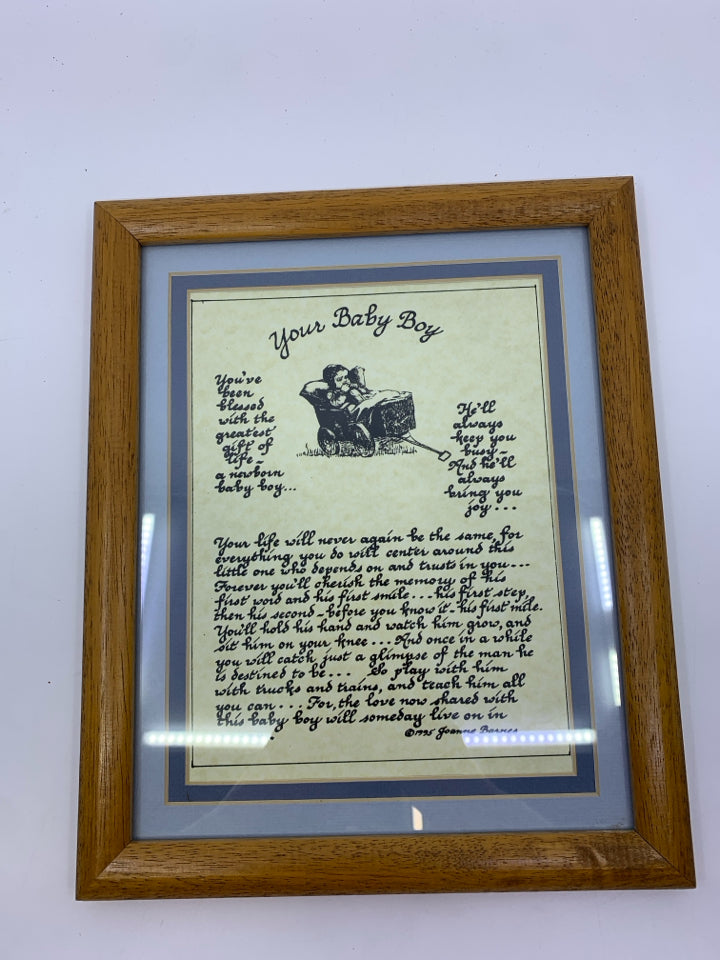 Your Baby Boy
You've
been
blessed
with the
greatest
gift of
life -
a newborn
baby boy...
He'll
always
keep you
busy -
And he'll
always
bring you
joy...
Your life will never again be the same, for
everything you do will center around this
little one who depends on and trusts in you...
Forever you'll cherish the memory of his
first word and his first smile...his first step,
then his second - before you know it - his first mile.
You'll hold his hand and watch him grow, and
sit him on your knee... And once in a while
you will catch just a glimpse of the man he
is destined to be... So play with him
with trucks and trains, and teach him all
you can... For, the love now shared with
this baby boy will someday live on in
©1995 Joanne Barnes